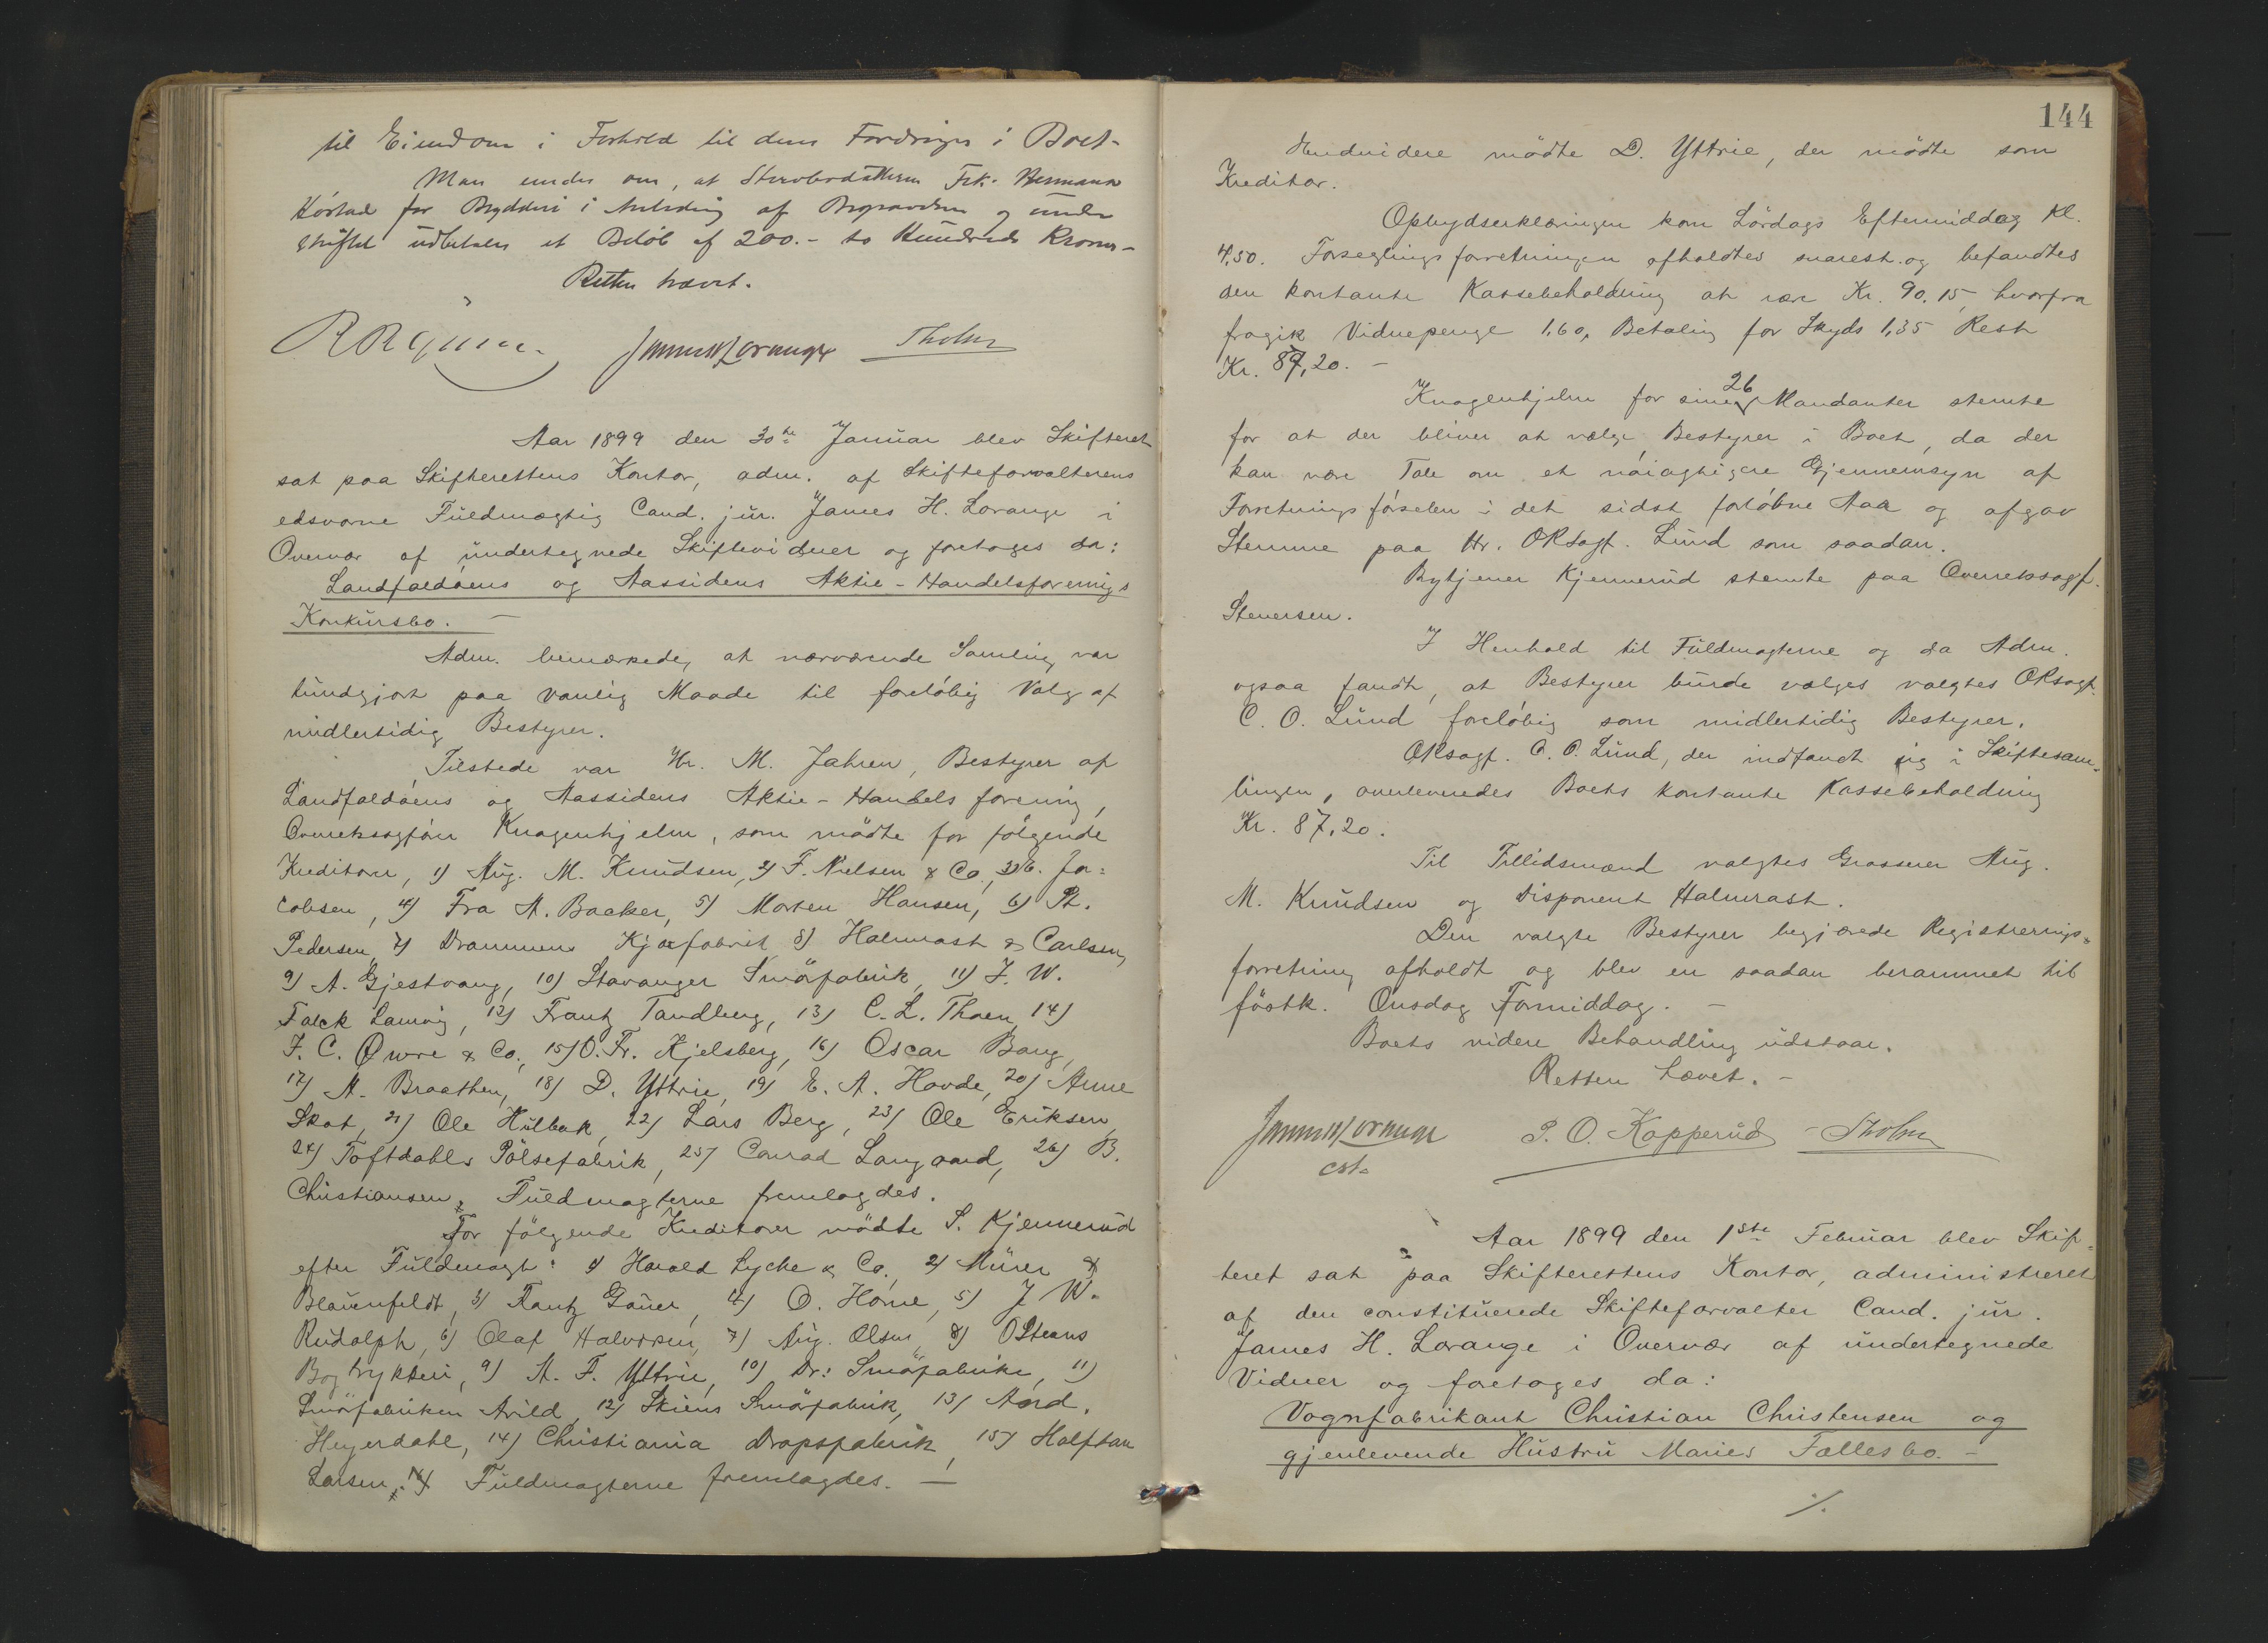 til Eiendom i Forhold til dens Fordringer i Boet-
Man enedes om, at Frk.
for Brydderi i Anledning af og under
Skiftet udbetales et Beløb af 200.- to Hundrede Kroner-
Retten hævet.
James H Lorange Tholm
Aar 1899 den 30te Januar blev Skifteret
sat paa Skifterettens Kontor, adm. af Skifteforvalterens
edsvorne Fuldmægtig Cand. jur. James H. Lorange i
Overvær af undertegnede Skiftevidner og foretoges da:
Landfaldøens og Aassidens Aktie-Handelsforenings
Konkursbo. -
Adm. bemærkede, at nærværende Samling var
kundgjort paa vanlig Maade til foreløbig Valg af
midlertidig Bestyrer.
Tilstede var Hr. M. Jahren, Bestyrer af
Landfaldøens og Aassidens Aktie-Handelsforening,
Overretssagfører Knagenhjelm, som mødte for følgende
Kreditorer, 1) Aug. M. Knudsen, 2) F. Nielsen & Co, 3) Ja=
cobsen, 4) Fra A. Backer, 5) Morten Hansen, 6) Pt.
Pedersen, 7) Drammens Kjæxfabrik 8) Halmrast & Carlsen,
9) A. Gjestvang, 10) Stavanger Smørfabrik, 11) J. W.
Falck Larvig, 12) Frantz Tandberg, 13) C. L. Thoen, 14)
J. C. Qwre & Co., 15) O. Fr. Kjelsberg, 16) Oscar Bang,
17) A. Braathen, 18) D. Yttrie, 19) E. A. Hovde, 20) Anne
Skot, 21) Ole Hulbak, 22) Lars Berg, 23) Ole Eriksen,
24) Toftdahls Pølsefabrik, 25) Conrad Langaard, 26) B.
Christiansen. Fuldmagterne fremlagdes.
For følgende Kreditorer mødte S. Kjennerud
efter Fuldmagt: 1) Harald Lyche & Co., 2) Mürer &
Blauenfeldt, 3) Frantz Gauer, 4) O. Horne, 5) J W.
Rudolph, 6) Olaf Halvorsen, 7) Aug. Olsen, 8) OSteens
Bogtrykkeri, 9) A. F. Yttrie, 10) Dr: Smørfabrike, 11)
Smørfabriken Arild, 12) Skiens Smørfabrik, 13) Aord.
Heyerdahl, 14) Christiania Dropsfabrik, 15) Halftan
Larsen. Fuldmagterne fremlagdes. -
144
Hendvidere mødte D. Yttrie, der mødte som
Kreditor.
Opbydserklæringen kom Lørdags Eftermiddag Kl.
4.50. Forseglingsforretningen afholdtes snarest og befandtes
den kontante Kassebeholdning at være Kr. 90.15, hvorfra
fragik Vidnepenge 1.60, Betaling for Skyds 1,35 Rest
Kr. 87,20. -
Knagenhjelm for sine 26 Mandanter stemte
for at der bliver at vælge Bestyrer i Boet, da der
kan være Tale om et nøiagtigere Gjennemsyn af
Forretningsførselen i det sidst forløbne Aar og afgav
Stemme paa Hr. ORsagf. Lund som saadan.
Bytjener Kjennerud stemte paa Overretssagf.
Stenersen.
I Henhold til Fuldmagterne og da Adm.
ogsaa fandt, at Bestyrer burde vælges valgtes ORsagf.
C. O. Lund foreløbig som midlertidig Bestyrer.
ORsagf. C. O. Lund, der indfandt sig i Skiftesam=
lingen, overleveredes Boets kontante Kassebeholdning
Kr. 87.20.
Til Tillidsmænd valgtes Grosserer Aug.
M. Knudsen og Disponent Halmrast.
Den valgte Bestyrer begjærede Registrerings=
forretning afholdt og blev en saadan berammet til
førstk. Onsdag Formiddag. -
Boets videre Behandling udstaar.
Retten hævet. -
James H Lorange P. O. Kopperud Tholm
cst.
Aar 1899 den 1ste Februar blev Skif=
teret sat paa Skifterettens Kontor, administreret
af den constituerede Skifteforvalter Cand. jur.
James H. Lorange i Overvær af undertegnede
Vidner og foretoges da:
Vognfabrikant Christian Christensen og
gjenlevende Hustru Maries Fællesbo. -
./.